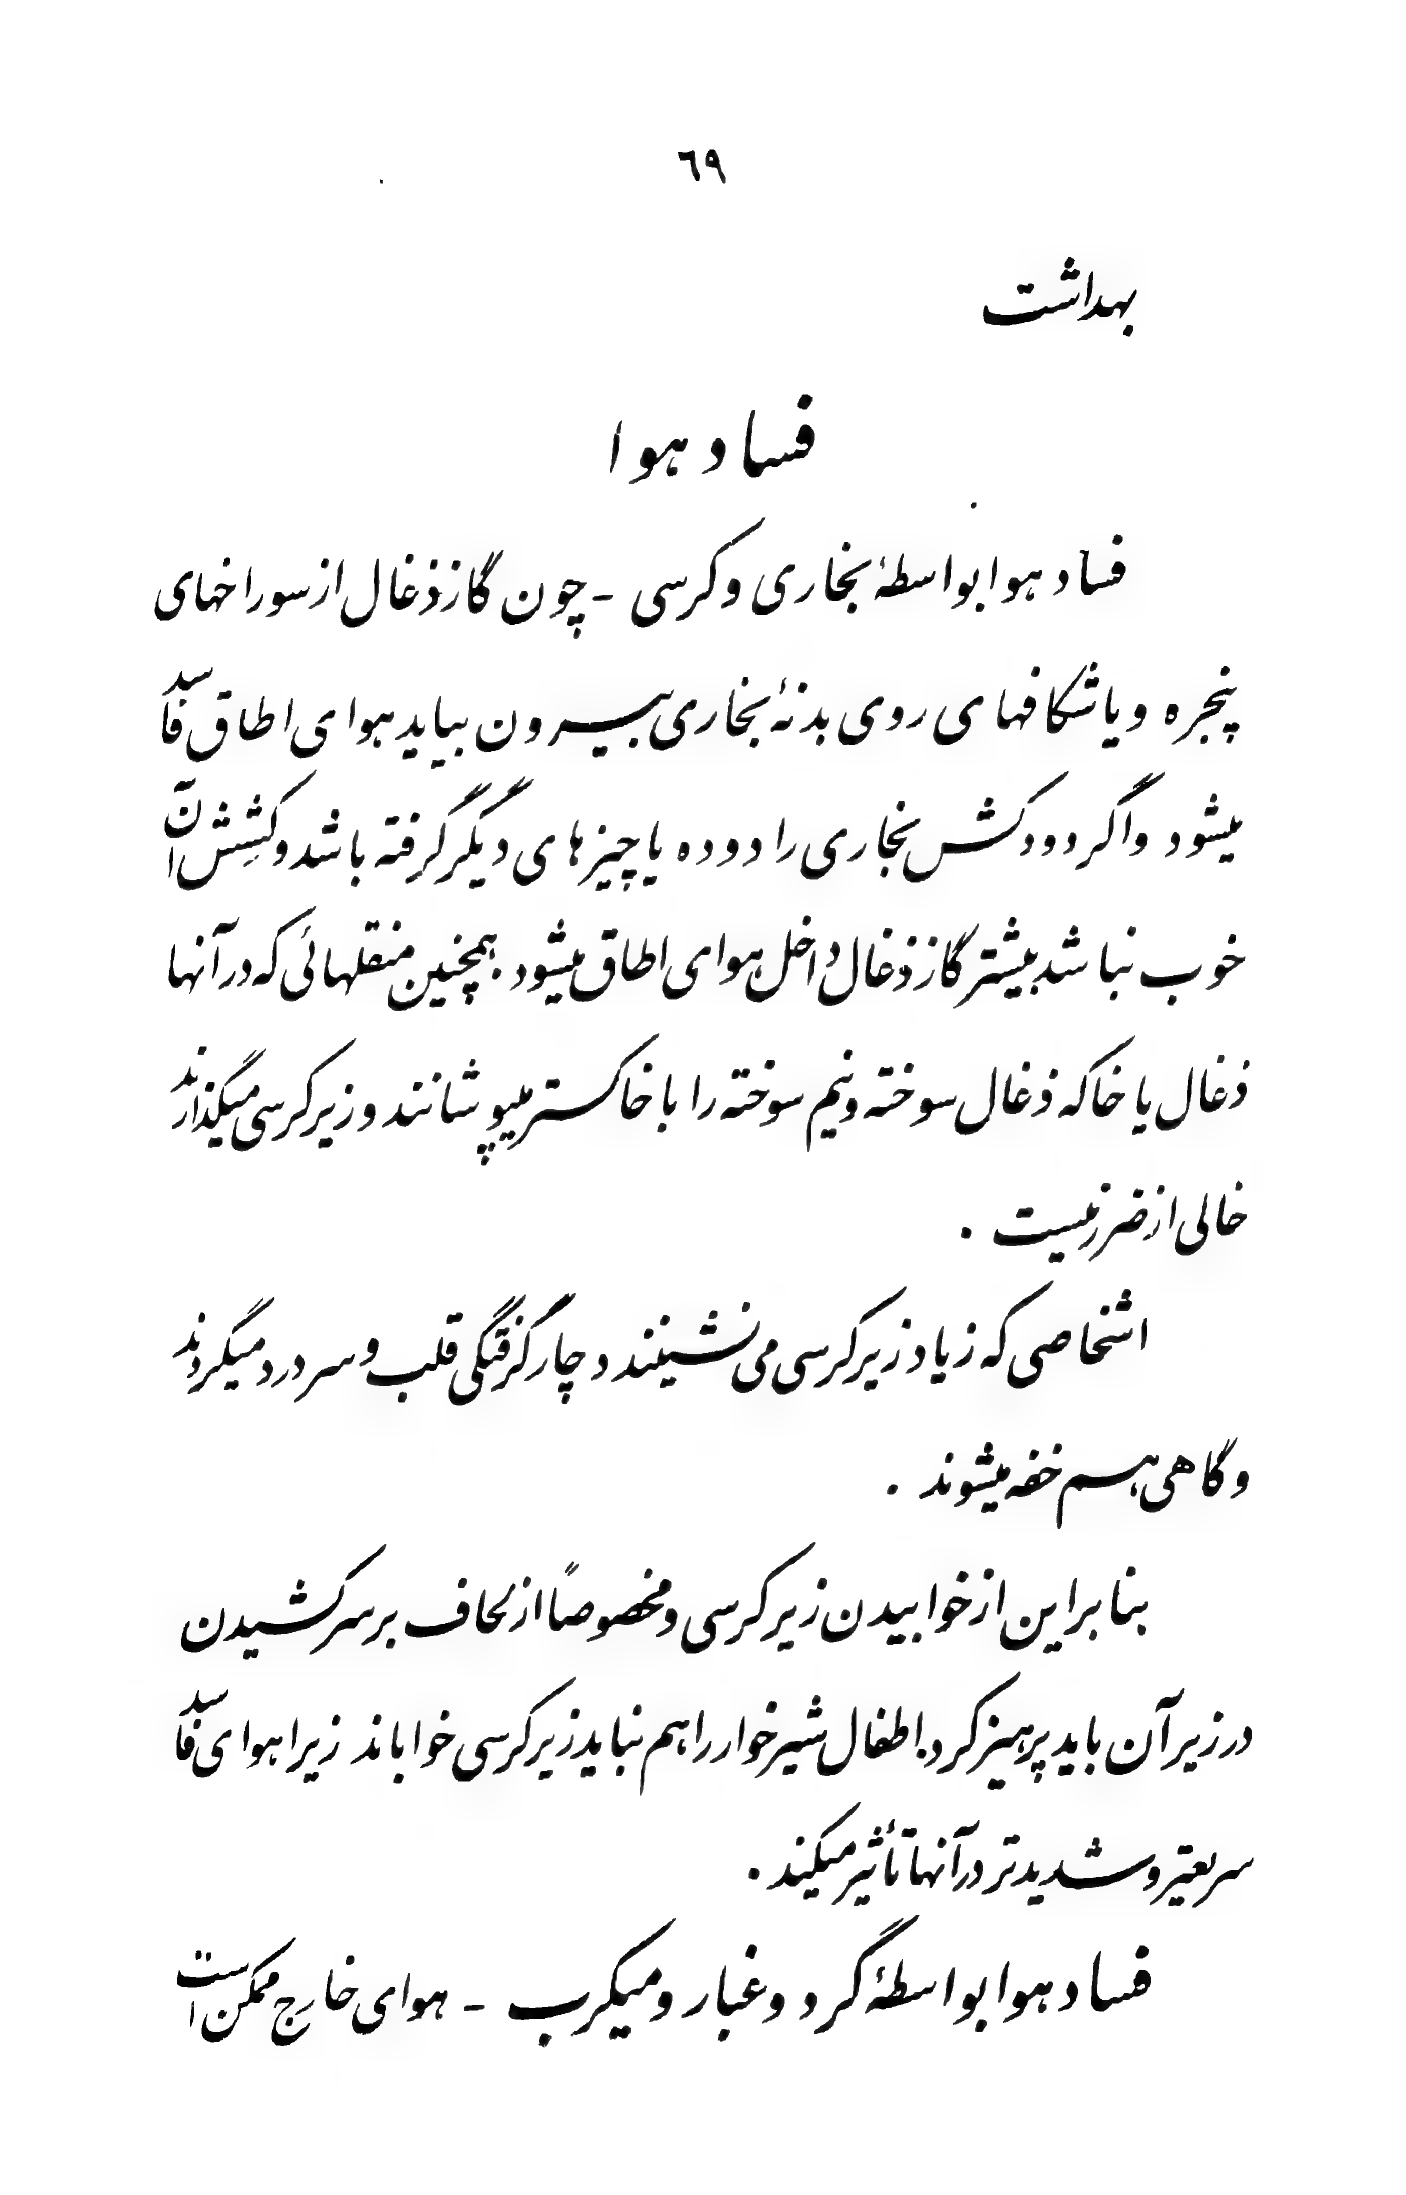 ٦٩
بهداشت
فساد هوا
فساد هوا بواسطهٔ بخاری و کرسی - چون گاز ذغال از سوراخهای
پنجره و یا شکافهای روی بدنهٔ بخاری بیرون بیاید هوای اطاق فاسد
میشود و اگر دودکش بخاری را دوده یا چیزهای دیگر گرفته باشد و کشِش آن
خوب نباشد بیشتر گاز ذغال داخل هوای اطاق میشود. همچنین منقلهائی که در آنها
ذغال یا خاکه ذغال سوخته و نیم سوخته را با خاکستر میپوشانند و زیر کرسی میگذارند
خالی از ضرر نیست .
اشخاصی که زیاد زیر کرسی می نشینند دچار گرفتگی قلب و سر درد میگردند
و گاهی هم خفه میشوند .
بنابراین از خوابیدن زیر کرسی و مخصوصاً از لحاف بر سر کشیدن
در زیر آن باید پرهیز کرد. اطفال شیرخوار را هم نباید زیر کرسی خواباند زیرا هوای فاسد
سریعتر و شدیدتر در آنها تأثیر میکند .
فساد هوا بواسطهٔ گرد و غبار و میکرب - هوای خارج ممکن است